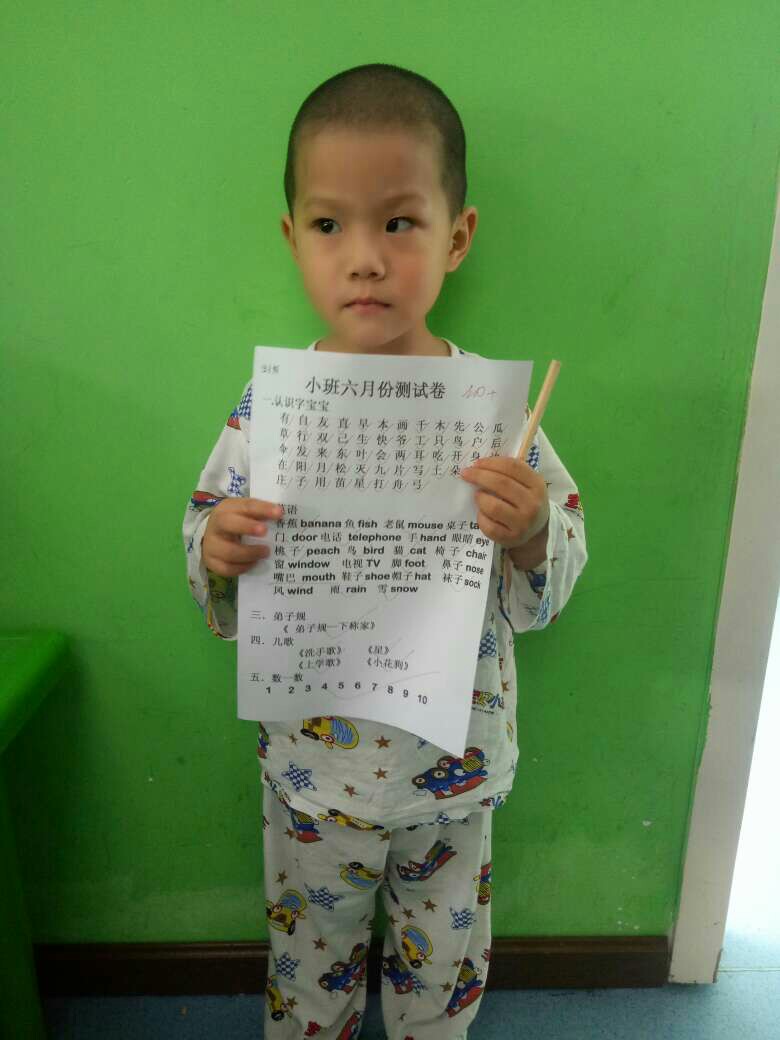 小班六月份测试卷
100+
一.认识字宝宝
有 自 友 直 早 本 画 千 木 先 公 瓜
草 行 双 己 生 快 爷 工 只 鸟 户 后
伞 发 来 东 叶 会 两 耳 吃 开 身
在 阳 月 松 灭 九 片 写 土 朵
庄 子 用 苗 星 打 舟 弓
英语
香蕉 banana 鱼 fish 老鼠 mouse 桌子
门 door 电话 telephone 手 hand 眼睛 eye
桃子 peach 鸟 bird 猫 cat 椅子 chair
窗 window 电视 TV 脚 foot 鼻子 nose
嘴巴 mouth 鞋子 shoe 帽子 hat 袜子 sock
风 wind 雨 rain 雪 snow
三．弟子规
《 弟子规—下称家》
四．儿歌
《洗手歌》 《星》
《上学歌》 《小花狗》
五．数一数
1 2 3 4 5 6 7 8 9 10